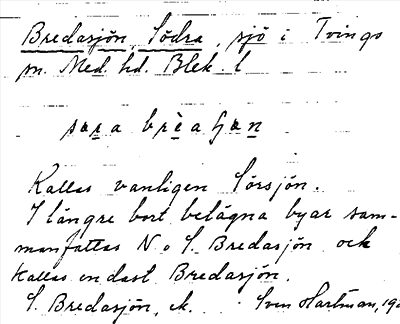 Bredasjön, Södra, sjö i Tvings
sn. Med. hd. Blek. l
Kallas vanligen Sörsjön.
I längre bort belägna byar sam-
manfattas N o S. Bredasjön och
kallas endast Bredasjön.
S. Bredasjön, ek. Sven Hartman, 192